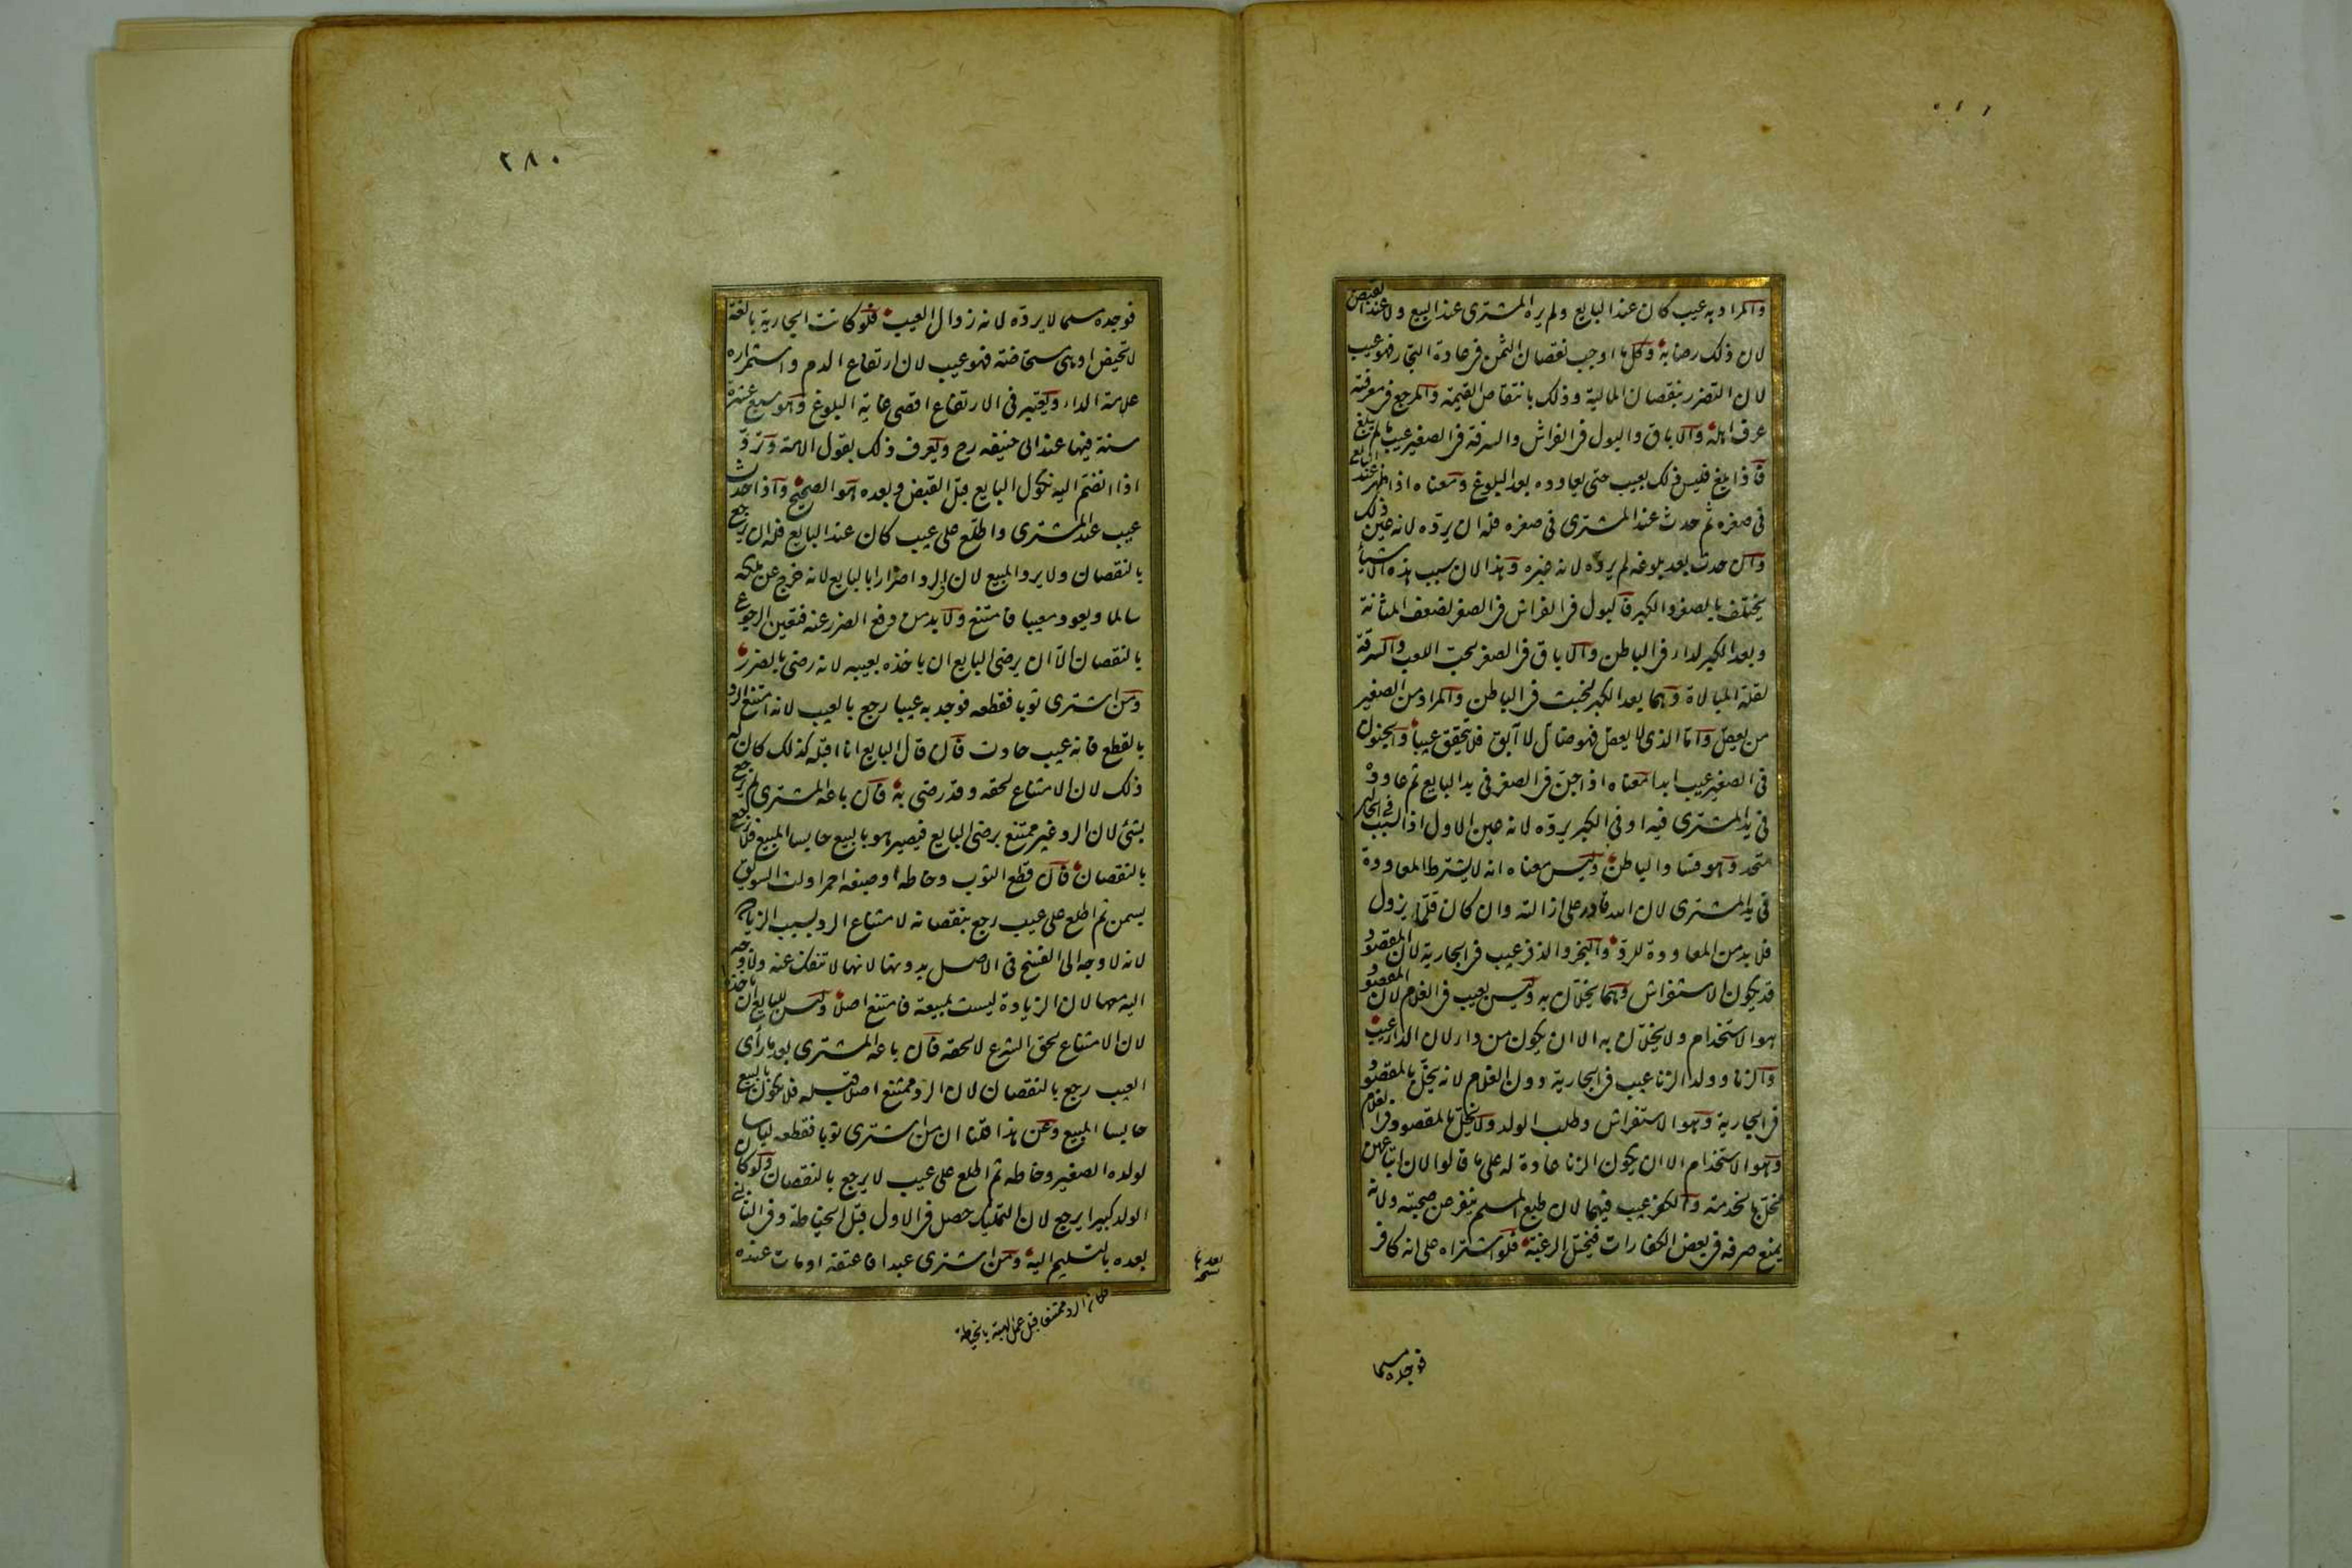 والمراد به عيب كان عند البايع ولم يره المشترى عند البيع ولا عند القبض
لان ذلك رضا به وكل ما اوجب نقصان الثمن فى عادة التجار فهو عيب
لان التضرر بنقصان المالية وذلك بانتقاص القيمة والمرجع فى معرفته
عرف اهله والاباق والبول فى الفراش والسرقة فى الصغير عيب ما لم يبلغ
فاذا بلغ فليس ذلك بعيب حتى يعاوده بعد البلوغ ومعناه اذا ظهر عند البايع
فى صغره ثم حدث عند المشترى فى صغره فله ان يرده لانه عين ذلك
وان حدث بعد بلوغه لم يرده لانه غيره وهذا لان سبب هذه الاشياء
يختلف بالصغر والكبر فالبول فى الفراش فى الصغر لضعف المثانة
وبعد الكبر لداء فى الباطن والاباق فى الصغر لحب اللعب والسرقة
لقلة المبالاة وهما بعد الكبر لخبث فى الباطن والمراد من الصغير
من يعقل واما الذى لا يعقل فهو ضال لا آبق فلا يتحقق عيبا والجنون
فى الصغير عيب ابدا معناه اذا جن فى الصغر فى يد البايع ثم عاوده
فى يد المشترى فيه او فى الكبر يرده لانه عين الاول اذ السبب فى الحالين
متحد وهو فساد الباطن وليس معناه انه لا يشترط المعاودة
فى يد المشترى لان الله قادر على ازالته وان كان قلما يزول
فلا بد من المعاودة للرد والبخر والذفر عيب فى الجارية لان المقصود
قد يكون الاستفراش وهما يخلان به وليس بعيب فى الغلام لان المقصود
هو الاستخدام ولا يخلان به الا ان يكون من داء لان الداء عيب
والزنا وولد الزنا عيب فى الجارية دون الغلام لانه يخل بالمقصود
فى الجارية وهو الاستفراش وطلب الولد ولا يخل بالمقصود فى الغلام
وهو الاستخدام الا ان يكون الزنا عادة له على ما قالوا لان اتباعهن
مخل بالخدمة والكفر عيب فيهما لان طبع المسلم ينفر عن صحبته ولانه
يمنع صرفه فى بعض الكفارات فيختل الرغبة فلو اشتراه على انه كافر
فوجده مسلما
٢٨٠
فوجده مسلما لا يرده لانه زوال العيب فلو كانت الجارية بالغة
لا تحيض او هى مستحاضة فهو عيب لان ارتفاع الدم واستمراره
علامة الداء ويعتبر فى الارتفاع اقصى غاية البلوغ وهو سبع عشرة
سنة فيها عند ابى حنيفه رح ويعرف ذلك بقول الامة وترد
اذا انضم اليه نكول البايع قبل القبض وبعده هو الصحيح واذا حدث
عيب عند المشترى واطلع على عيب كان عند البايع فله ان يرجع
بالنقصان ولا يرد المبيع لان فى الرد اضرارا بالبايع لانه خرج عن ملكه
سالما ويعود معيبا فامتنع ولا بد من دفع الضرر عنه فتعين الرجوع
بالنقصان الا ان يرضى البايع ان ياخذه بعيبه لانه رضى بالضرر
ومن اشترى ثوبا فقطعه فوجد به عيبا رجع بالعيب لانه امتنع الرد
بالقطع فانه عيب حادث فان قال البايع انا اقبله كذلك كان له
ذلك لان الامتناع لحقه وقد رضى به فان باعه المشترى لم يرجع
بشئ لان الرد غير ممتنع برضى البايع فيصير هو بالبيع حابسا للمبيع فلا يرجع
بالنقصان فان قطع الثوب وخاطه او صبغه احمر او لت السويق
بسمن ثم اطلع على عيب رجع بنقصانه لامتناع الرد بسبب الزيادة
لانه لا وجه الى الفسخ فى الاصل بدونها لانها لا تنفك عنه ولا وجه
اليه معها لان الزيادة ليست بمبيعة فامتنع اصلا وليس للبايع ان ياخذه
لان الامتناع لحق الشرع لا لحقه فان باعه المشترى بعد ما رأى
العيب رجع بالنقصان لان الرد ممتنع اصلا قبله فلا يكون بالبيع
حابسا للمبيع وعن هذا قلنا ان من اشترى ثوبا فقطعه لباسا
لولده الصغير وخاطه ثم اطلع على عيب لا يرجع بالنقصان ولو كان
الولد كبيرا يرجع لان التمليك حصل فى الاول قبل الخياطة وفى الثانى
بعده بالتسليم اليه ومن اشترى عبدا فاعتقه او مات عنده
بعدها نسخه